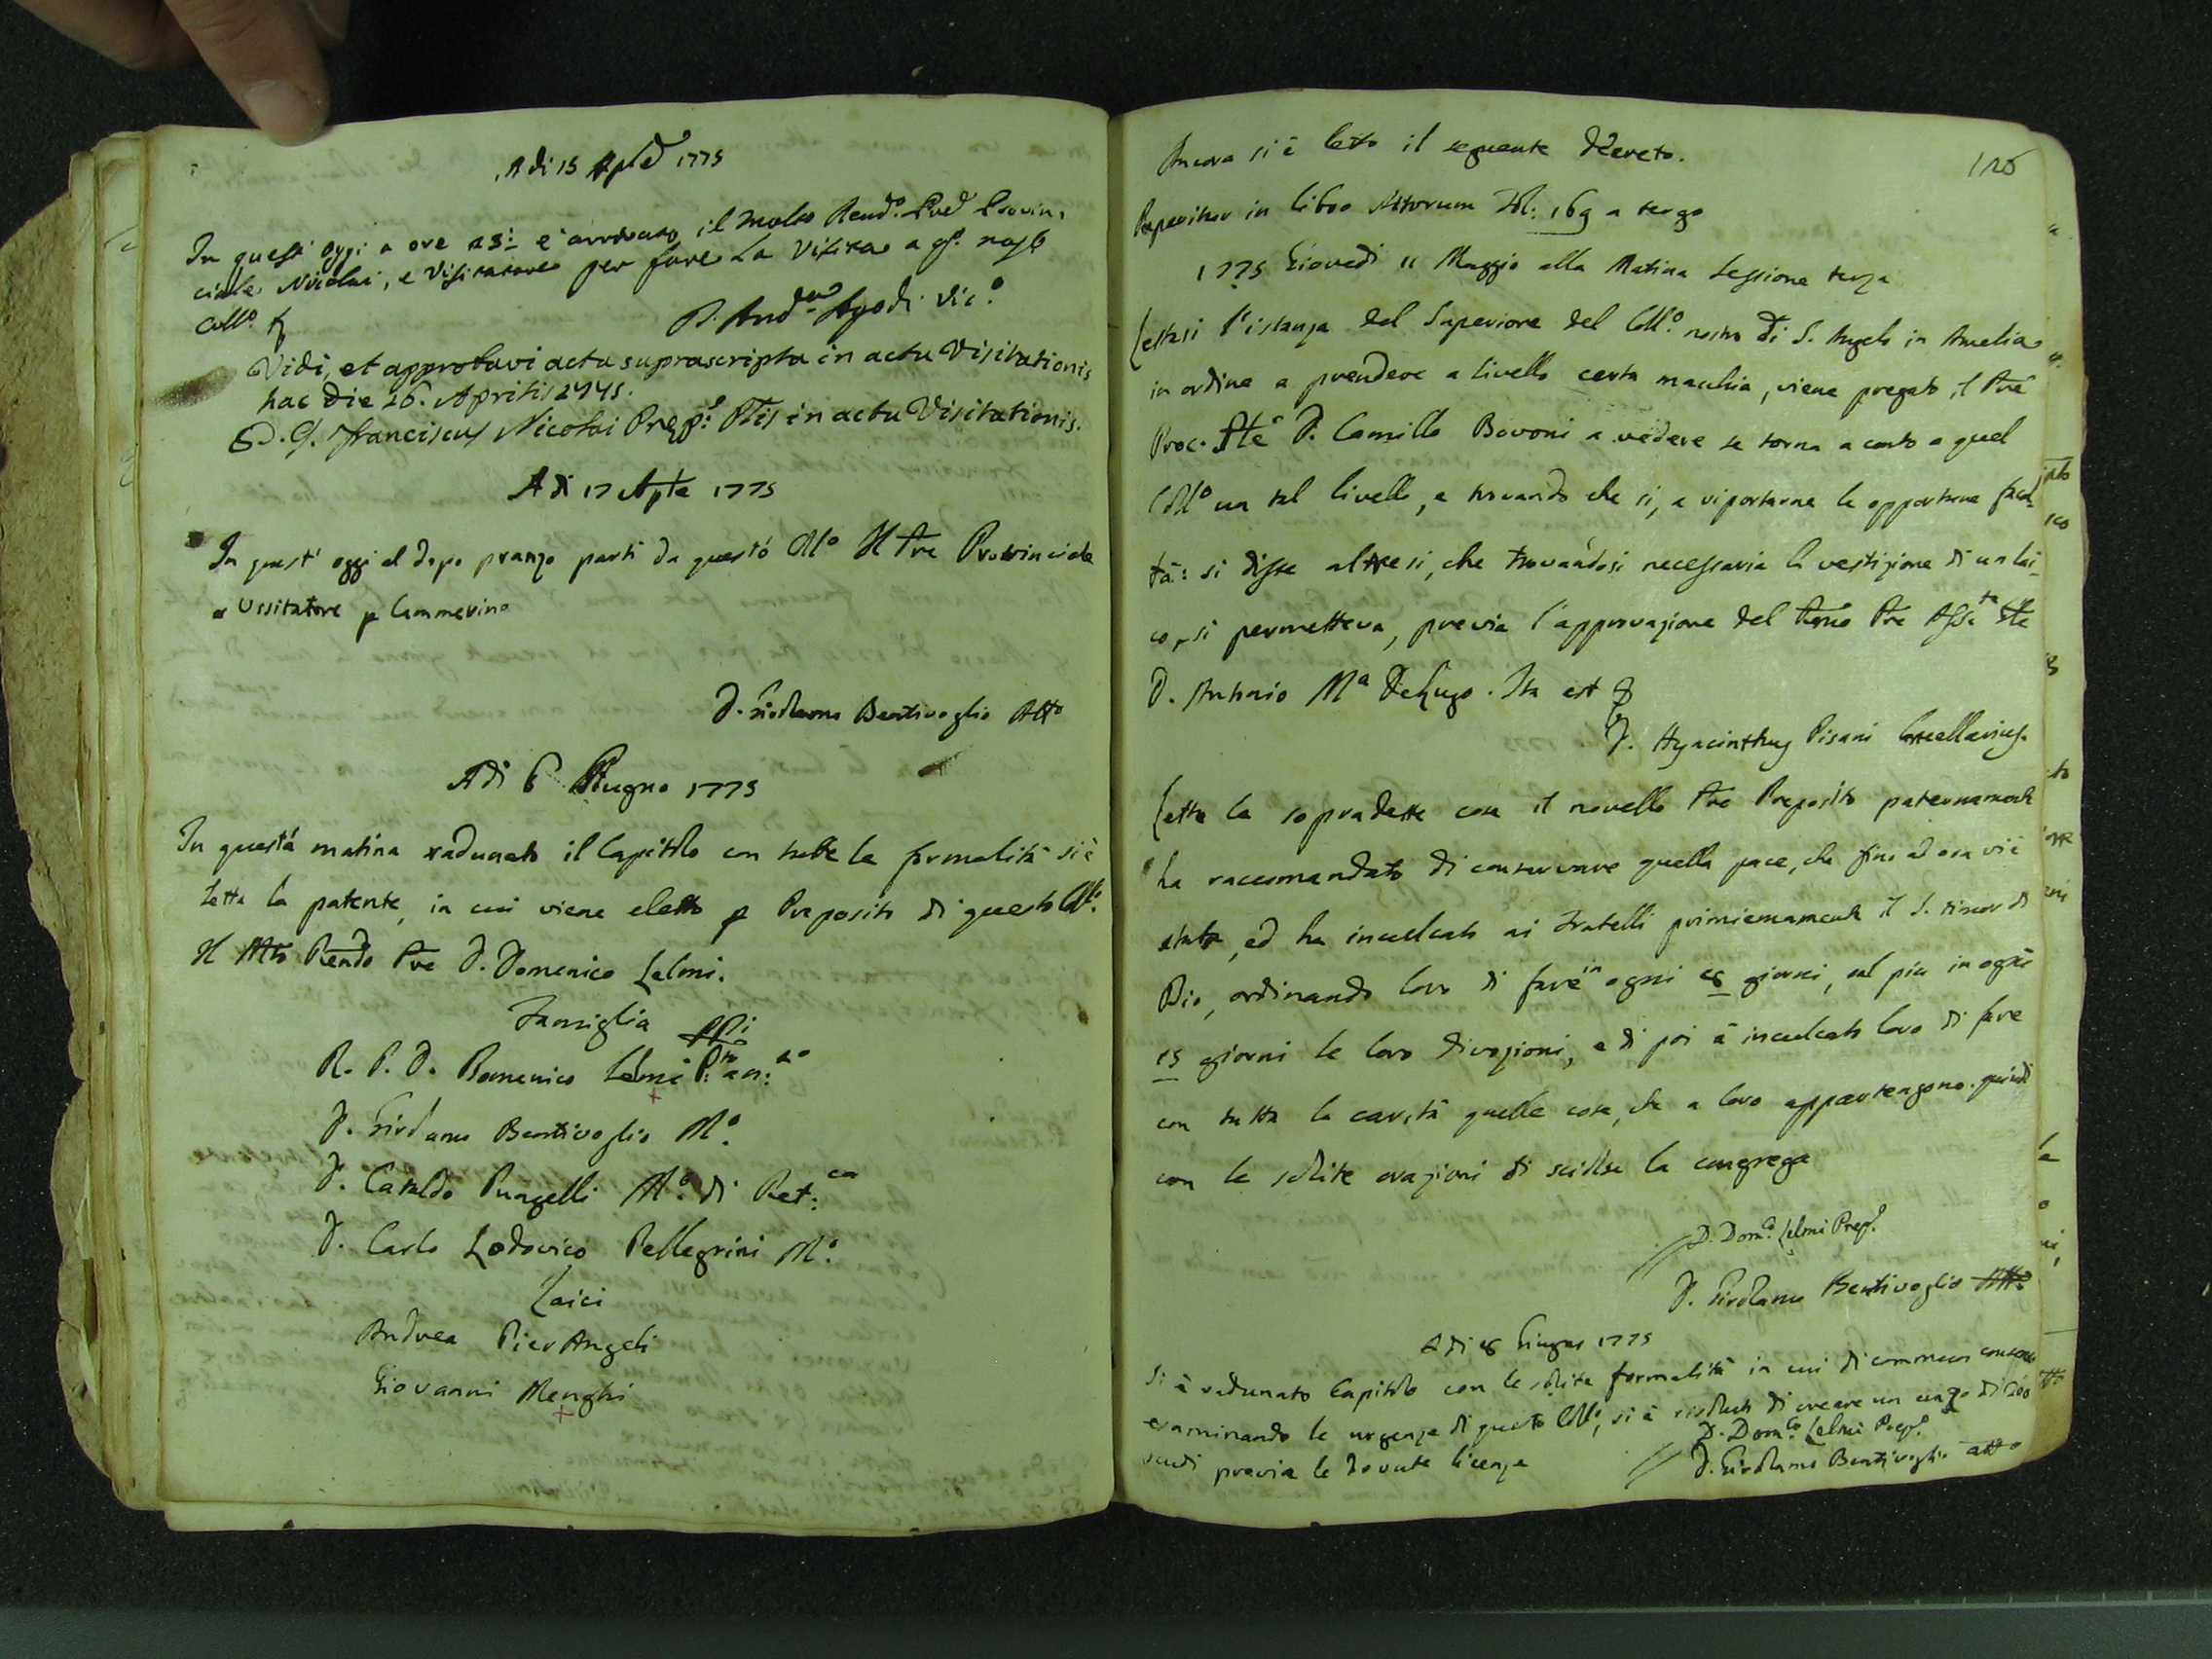 A di 15 Aple 1775
In quest' oggi a ore 23: e' arrivato il Molto Rendo. Pred Provin,
ciale Nicolai, e Visitatore per fare la Visita a qto. nostro
Collo.
P. Andrea Agodi Vico.
Vidi, et approbavi acta suprascripta in actu Visitationis
hac die 16. Aprilis 1775.
D. G. Franciscus Nicolai Prepo: Plis in actu Visitationis.
A di 17 Aple 1775
In quest' oggi al dopo pranzo partì da questo Collo Il Pre Provinciale
e Visitatore p Cammerino
D. Girolamo Bentivoglio Atto
A di 6 Giugno 1775
In questa matina radunato il Capitolo con tutte le formalità si è
letta la patente, in cui viene eletto p Preposito di questo Collo.
Il Mto Rendo Pre D. Domenico Lelmi.
Famiglia
R. P. D. Domenico Lelmi
D. Girolamo Bentivoglio Mo.
D. Cataldo Pungelli Mo. di Ret:ca
D. Carlo Lodovico Pellegrini Mo.
Laici
Andrea Pier Angeli
Giovanni Menghi
126
Ancora si è letto il seguente Decreto.
Reperitur in libro Actorum Fol: 169 a tergo
1775 Giovedì 11 Maggio alla Matina Sessione terza
Lettasi l'istanza del Superiore del Collo. nostro di S. Angelo in Amelia
in ordine a prendere a livello certa macchia, viene pregato il Pre
Proc. Gle D. Camillo Bovoni a vedere se torna a conto a quel
Collo un tal livello, e trovando che si, a riportarne le opportune facol
tà: si disse altresi, che trovandosi necessaria la vestizione di un lai-
co, si permetteva, previa l'approvazione del Pre Assite Gle
D. Antonio Ma DeLugo. Ita est
D. Hyacinthus Pisani Cancellarius.
Lette le sopradette cose il novello Pre Preposito paternamente
ha raccomandato di conservare quella pace, che fino ad ora vi è
stata, ed ha inculcato ai Fratelli primieramente il S. timor di
Dio, ordinando loro di fare in ogni 8 giorni, o al più in ogni
15 giorni le loro divozioni, e di poi à inculcato loro di fare
con tutta la carità quelle cose, che a loro appartengono. quindi
con le solite orazioni si sciolse la congrega
D. Domco. Lelmi Prepo.
D. Girolamo Bentivoglio Atto
A di 8 Giugno 1775
Si è radunato Capitolo con le solite formalità in cui di commun consenso
esaminando le urgenze di questo Collo, si è risoluto di creare un cenzo di 200
scudi previa le dovute licenze
D. Domco Lelmi Prepo.
D. Girolamo Bentivoglio atto